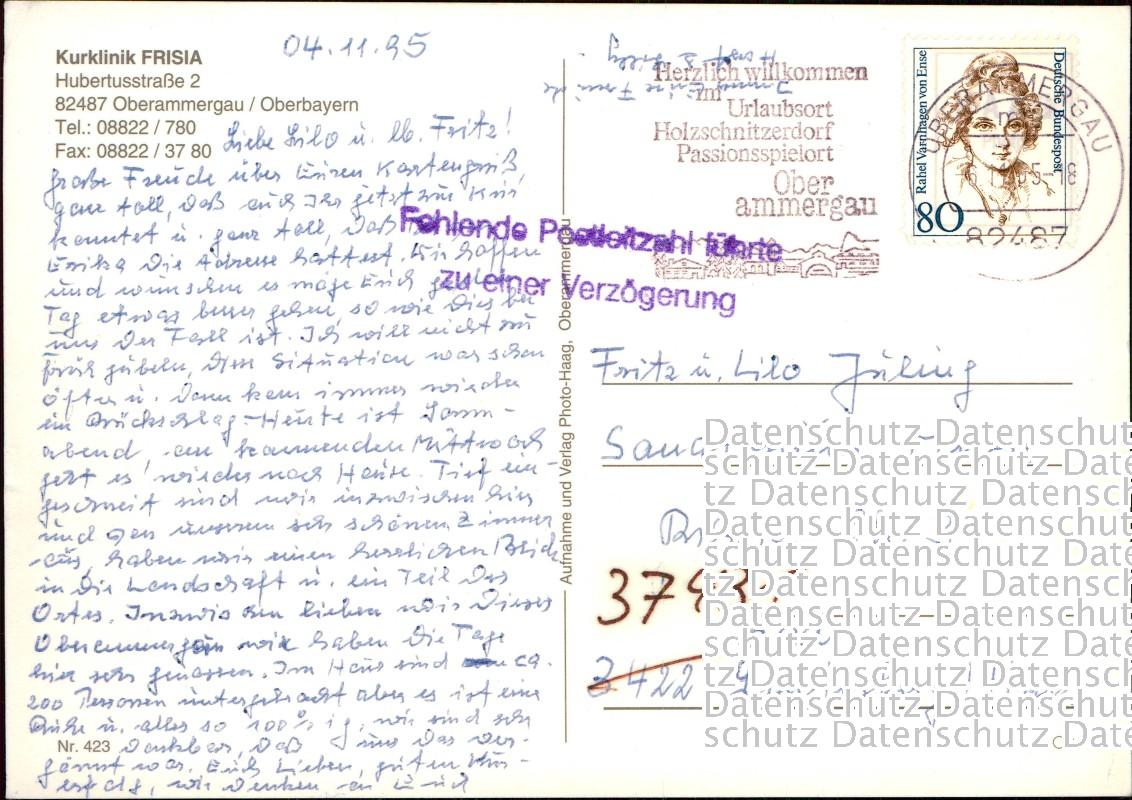 Kurklinik FRISIA
Hubertusstraße 2
82487 Oberammergau / Oberbayern
Tel.: 08822 / 780
Fax: 08822 / 37 80
04.11.95
Liebe Lilo u. lb. Fritz!
große Freude über Euren Kartengruß,
ganz toll, daß auch Ihr jetzt zur Kur
konntet u. ganz toll, daß
Erika die Adresse hattest. Wir hoffen
und wünschen es möge Euch
Tag etwas besser gehen, so wie dies bei
uns der Fall ist. Ich will nicht zu
früh jubeln, diese Situation war schon
öfter u. dann kam immer wieder
ein Rückschlag. - Heute ist Sonn-
abend, am kommenden Mittwoch
geht es wieder nach Hause. Tief ein-
geschneit sind wir inzwischen hier
und von unserem sehr schönen Zimmer
aus, haben wir einen herrlichen Blick
in die Landschaft u. ein Teil des
Ortes. Inzwischen lieben wir dieses
Oberammergau wir haben die Tage
hier sehr genossen. Im Haus sind ca.
200 Personen untergebracht aber es ist eine
Ruhe u. alles so 100% ig, wir sind sehr
dankbar, daß uns das ver-
gönnt war. Euch Lieben, guten Kur-
erfolg, wir denken an Euch
Nr. 423
Immer Eure Freunde
Horst &
Aufnahme und Verlag Photo-Haag, Oberammergau
Herzlich willkommen
im
Urlaubsort
Holzschnitzerdorf
Passionsspielort
Ober
ammergau
Fehlende Postleitzahl führte
zu einer Verzögerung
Rahel Varnhagen von Ense
Deutsche Bundespost
80
OBERAMMERGAU
82487
Fritz u. Lilo Jüling
3422
Datenschutz Datenschutz
schutz Datenschutz Date
tz Datenschutz Datensch
Datenschutz Datenschutz
schutz Datenschutz Date
tz Datenschutz Datensch
Datenschutz Datenschutz
schutz Datenschutz Date
tz Datenschutz Datensch
Datenschutz Datenschutz
schutz Datenschutz